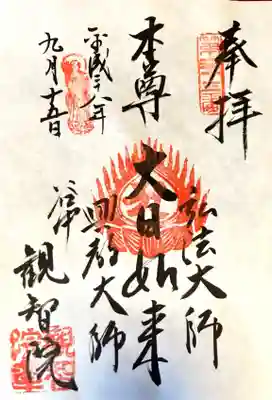 奉拝
弘法大師
本尊 大日如来
興教大師
平成二十八年
九月十五日
谷中 観智院